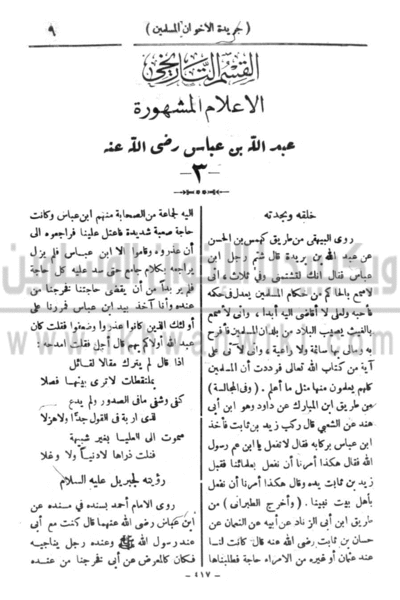 ٩
( جريدة الاخوان المسلمين )
القسم التاريخي
الاعلام المشهورة
عبد الله بن عباس رضى الله عنه
— ٣ —
خلقه ونجدته
روى البيهقى من طريق كهمس بن الحسن
عن عبد الله بن بريدة قال شتم رجل ابن
عباس فقال انك لتشتمنى وفى ثلاث ، انى
لاسمع بالحاكم من أحكام المسلمين يعدل فى حكمه
فأحبه ولعلى لا أقاضى اليه أبدا ، وانى لاسمع
بالغيث يصيب البلاد من بلدان المسلمين فأفرح
به ومالى بها سائمة ولا راعية ، وانى لآتى على
آية من كتاب الله تعالى فوددت أن المسلمين
كلهم يعلمون منها مثل ما أعلم . ( وفى المجالسة )
من طريق ابن المبارك عن داود وهو ابن أبى
هند عن الشعبى قال ركب زيد بن ثابت فأخذ
ابن عباس بركابه فقال لا تفعل يا ابن عم رسول
الله فقال هكذا أمرنا أن نفعل بعلمائنا فقبل
زيد بن ثابت يده وقال هكذا أمرنا أن نفعل
بأهل بيت نبينا . ( وأخرج الطبرانى ) من
طريق ابن أبى الزناد عن أبيه عن النعمان عن
حسان بن ثابت رضى الله عنه قال كانت لنا
عند عثمان أو غيره من الامراء حاجة فطلبناها
اليه لجماعة من الصحابة منهم ابن عباس وكانت
حاجة صعبة شديدة فاعتل علينا فراجعوه الى
أن عذروه وقاموا الا ابن عباس فلم يزل
يراجعه بكلام جامع حتى سد عليه كل حاجة
فلم ير بداً من أن يقضى حاجتنا فخرجنا من
عنده وأنا آخذ بيد ابن عباس فمررنا على
أولئك الذين كانوا عذروا وضعفوا فقلت كان
عبد الله أولاكم بهم قال أجل فقلت أمدحه :
اذا قال لم يترك مقالا لقائل
بملتقطات لاترى بينها فصلا
كفى وشفى مافى الصدور ولم يدع
لذى اربة فى القول جدًا ولا هزلا
سموت الى العليا بغير شبيهة
فنلت ذراها لا دنيا ولا وغلا
رؤيته لجبريل عليه السلام
روى الامام أحمد بسنده فى مسنده عن
ابن عباس رضى الله عنهما قال كنت مع أبى
عند رسول الله ﷺ وعنده رجل يناجيه
فكان كالمعرض عن أبى فخرجنا من عنده
— ٤١٧ —